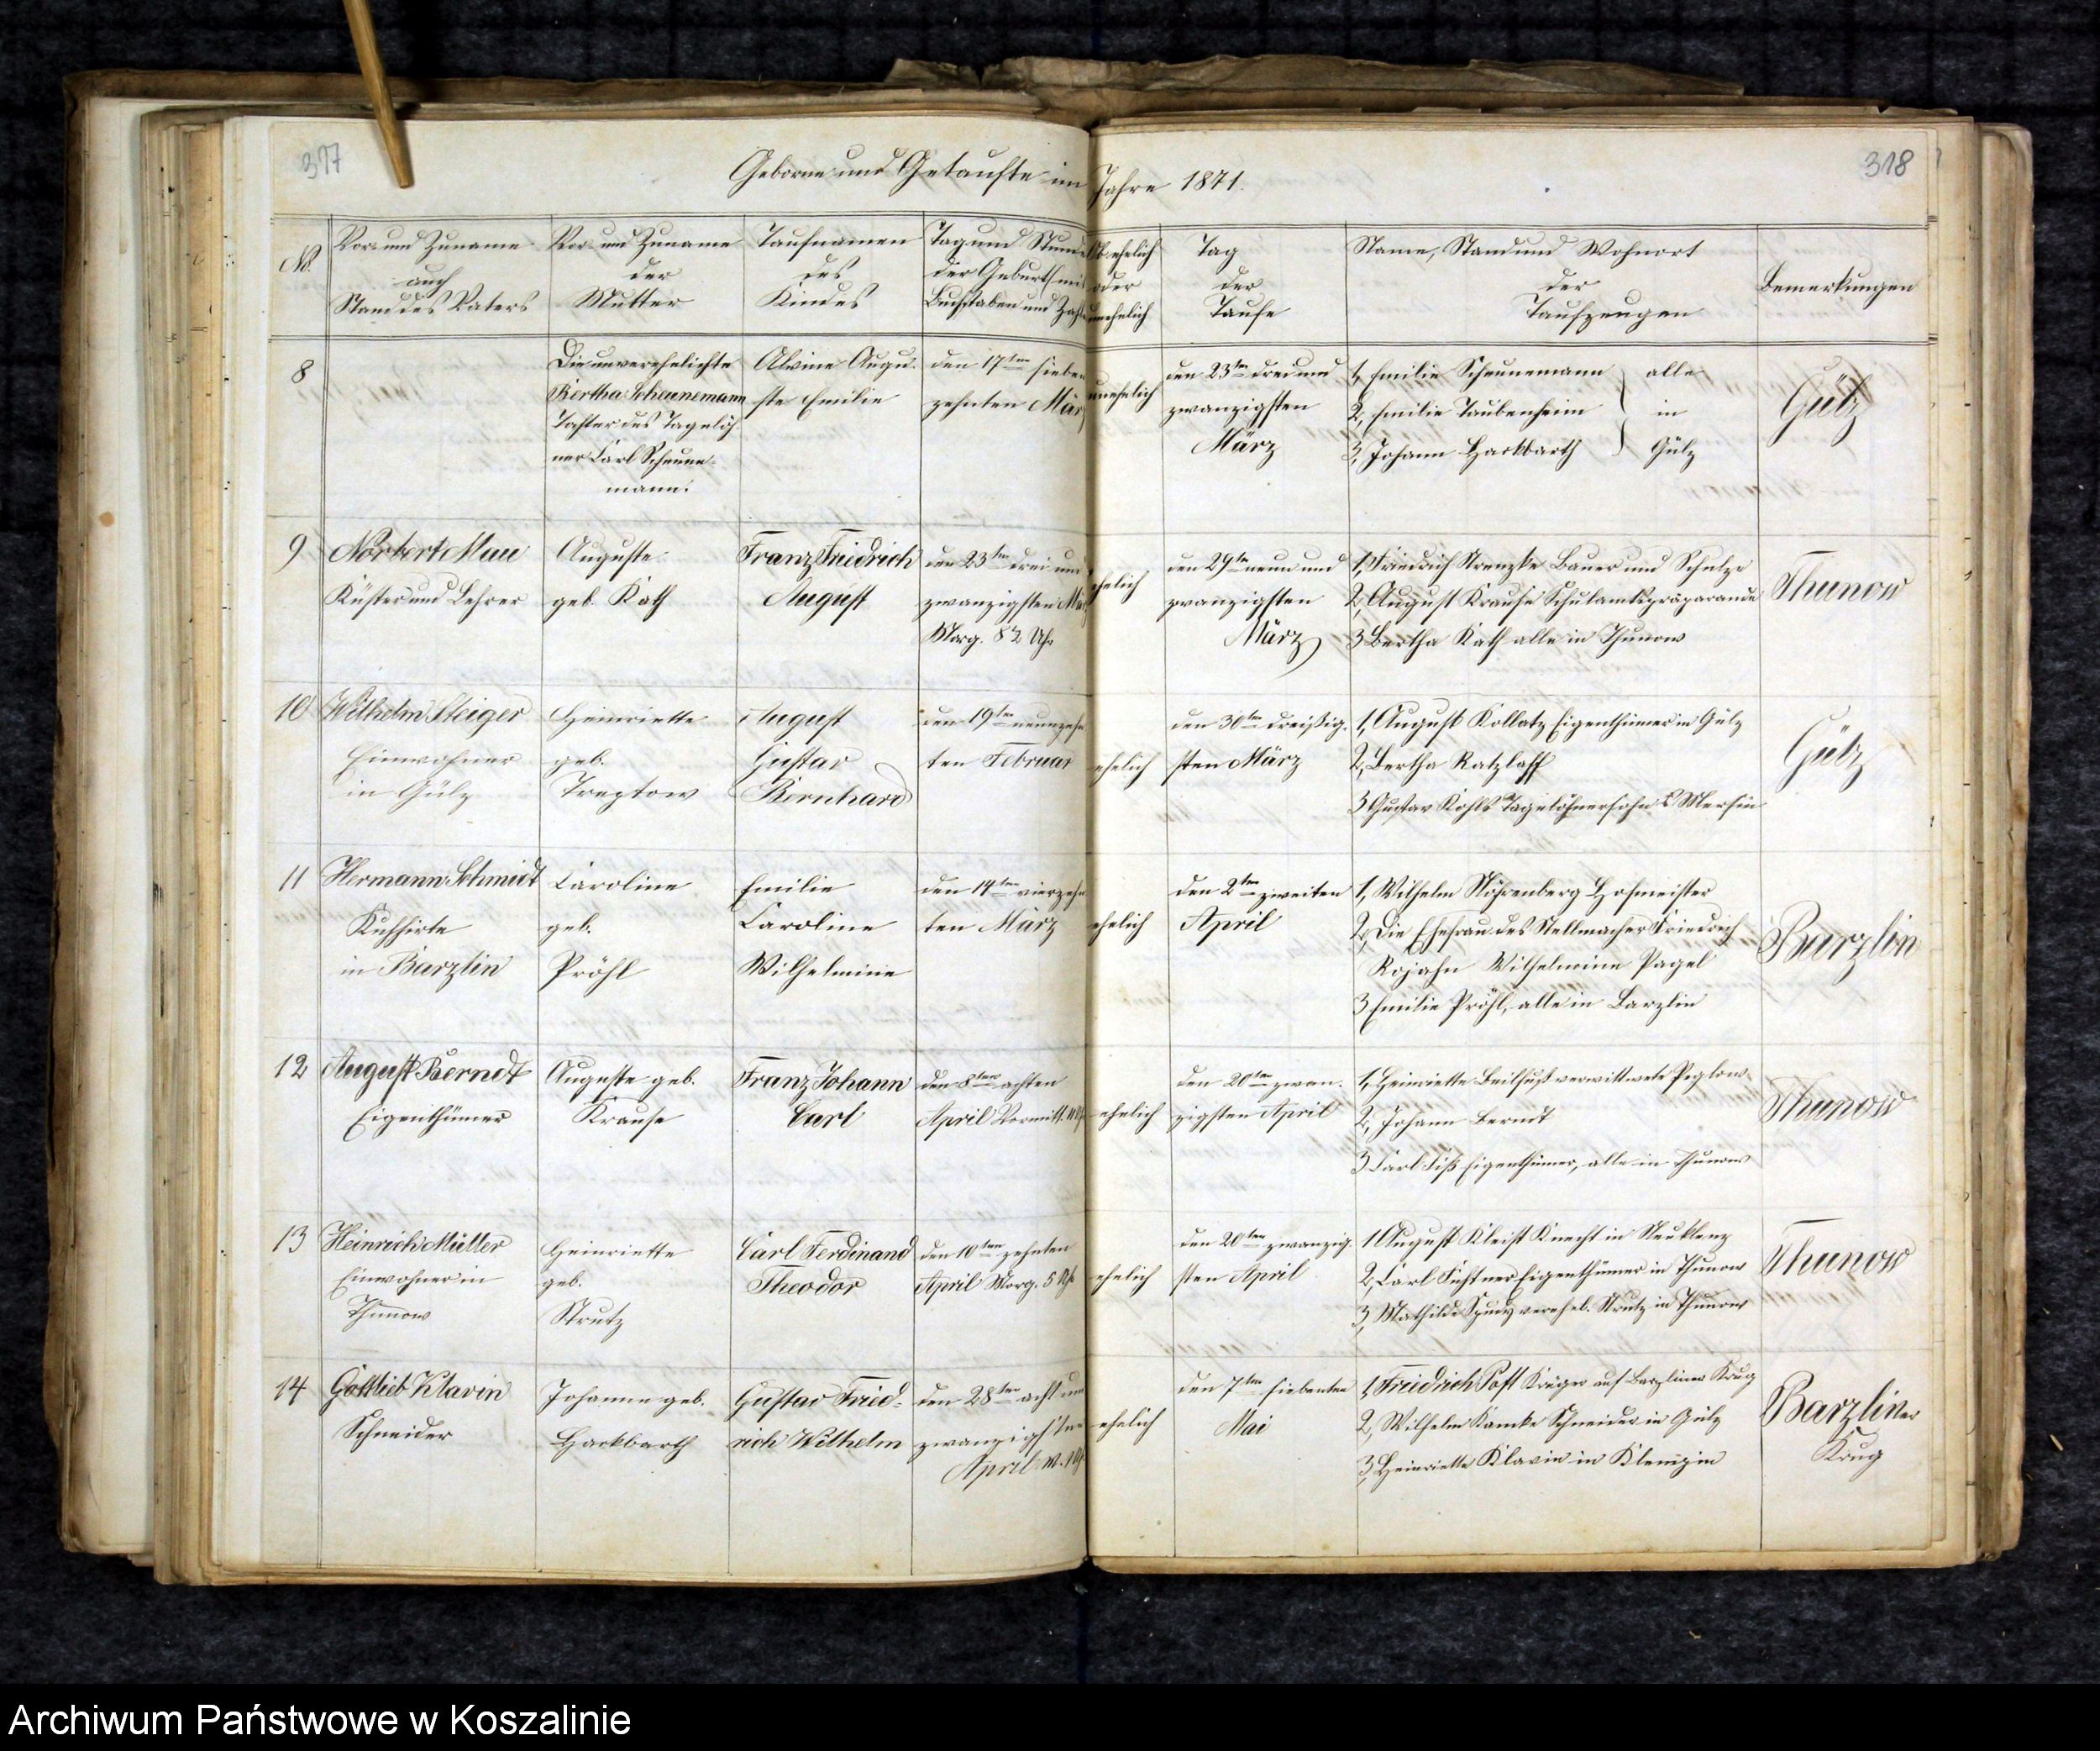 317
318
Geborne und Getaufte im Jahre 1871.
No.
Vor- und Zuname
auch
Stand des Vaters
Vor- und Zuname
der
Mutter
Taufnamen
des
Kindes
Tag und Stunde
der Geburt (mit
Buchstaben und
Ob ehelich
oder
unehelich
Tag
der
Taufe
Name, Stand und Wohnort
der
Taufzeugen
Bemerkungen
8
Die unverehelichte
Bertha Scheunemann
Tochter des Tagelöh-
ner Carl Scheune-
mann.
Alwine Augu-
ste Emilie
den 17ten sieben
zehnten März
unehelich
den 23ten drei und
zwanzigsten
März
1, Emilie Scheunemann
2, Emilie Taubenheim
3, Johann Hackbarth
alle
in
Gülz
Gülz
9
Norbert Mau
Küster und Lehrer
Auguste
geb. Kath
Franz Friedrich
August
den 23ten drei und
zwanzigsten März
Morg. 8½ Uhr
ehelich
den 29ten neun und
zwanzigsten
März
1, Friedrich Strenzke Bauer und Schulze
2, August Krause Schulamtspräparande
3 Bertha Kath alle in Thunow
Thunow
10
Wilhelm Steiger
Einwohner
in Gülz
Heinriette
geb.
Treptow
August
Gustav
Bernhard
den 19ten neunzehn
ten Februar
ehelich
den 30ten dreißig-
sten März
1, August Kollatz Eigenthümer in Gülz
2, Bertha Ratzlaff
3 Gustav Kohls Tagelöhnersohn Mersin
Gülz
11
Hermann Schmidt
Kuhhirte
in Barzlin
Caroline
geb.
Pröhl
Emilie
Caroline
Wilhelmine
den 14ten vierzehn
ten März
ehelich
den 2ten zweiten
April
1, Wilhelm Nöhrenberg Hofmeister
2, Die Ehefrau des Stellmacher Friedrich
Rojahn Wilhelmine Pagel
3 Emilie Pröhl, alle in Barzlin
Barzlin
12
August Berndt
Eigenthümer
Auguste geb.
Krause
Franz Johann
Carl
den 8ten achten
April Vormitt.
ehelich
den 20ten zwan-
zigsten April
1, Heinriette Beilfuß verwittwete Peglow
2, Johann Berndt
3 Carl Eigenthümer, alle in Thunow
Thunow
13
Heinrich Müller
Einwohner in
Thunow
Heinriette
geb.
Strutz
Carl Ferdinand
Theodor
den 10ten zehnten
April Morg. 5 Uhr
ehelich
den 20ten zwanzig-
sten April
1 August Kleist Knecht in Neuklenz
2, Carl Fichtner Eigenthümer in Thunow
3, Mathilde verehel. Strutz in Thunow
Thunow
14
Gottlieb Klavin
Schneider
Johanne geb.
Hackbarth
Gustav Fried-
rich Wilhelm
den 28ten acht und
zwanzigsten
April
ehelich
den 7ten siebenten
Mai
1, Friedrich Post Krüger auf Barzliner Krug
2, Wilhelm Kamke Schneider in Gülz
3, Heinriette Klavin in Klempin
Barzliner
Krug
Archiwum Państwowe w Koszalinie